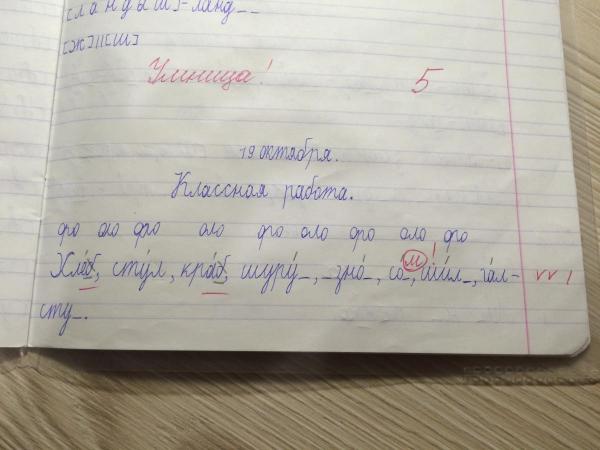 [ландыш]-ланд__
[ж]||[ш]
Умница! 5
19 октября.
Классная работа.
фро оло фро оло фро оло фро оло фро
стул, шуру_, _зно_, со_, гал-
сту_.